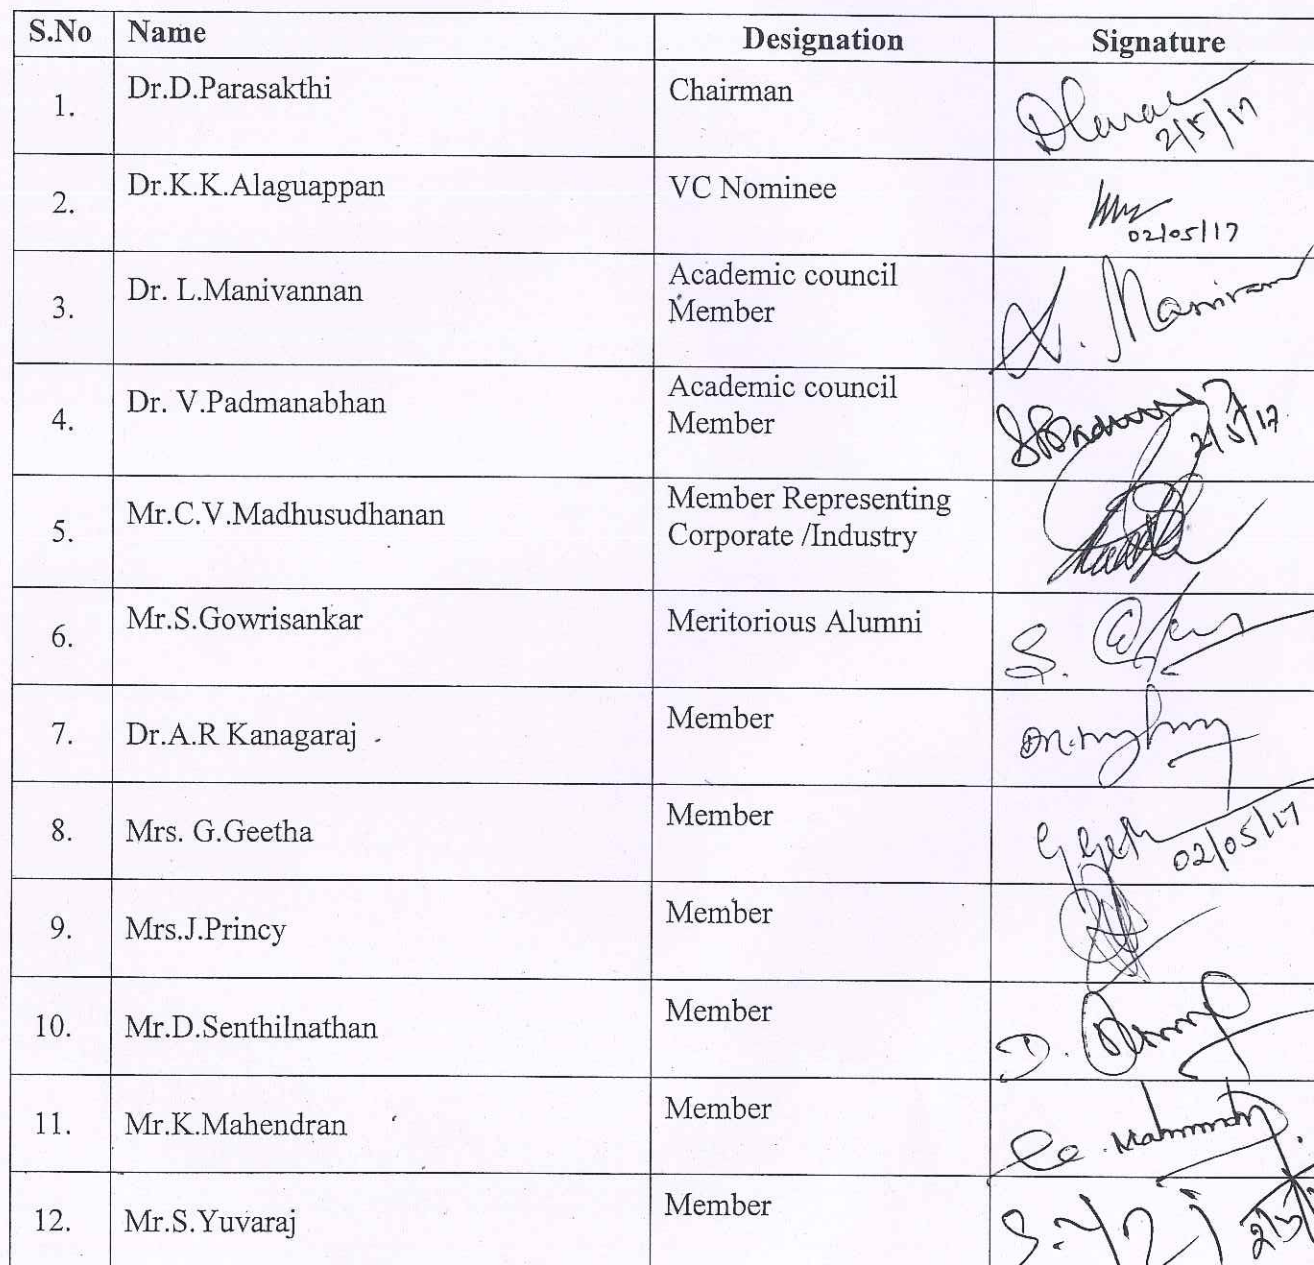 S.No Name Designation Signature
1. Dr.D.Parasakthi Chairman
2/5/17
2. Dr.K.K.Alaguappan VC Nominee
02/05/17
3. Dr. L.Manivannan Academic council
Member
4. Dr. V.Padmanabhan Academic council
Member
2/5/17
5. Mr.C.V.Madhusudhanan Member Representing
Corporate /Industry
6. Mr.S.Gowrisankar Meritorious Alumni
S.
7. Dr.A.R Kanagaraj Member
8. Mrs. G.Geetha Member
02/05/17
9. Mrs.J.Princy Member
10. Mr.D.Senthilnathan Member
D.
11. Mr.K.Mahendran Member
12. Mr.S.Yuvaraj Member